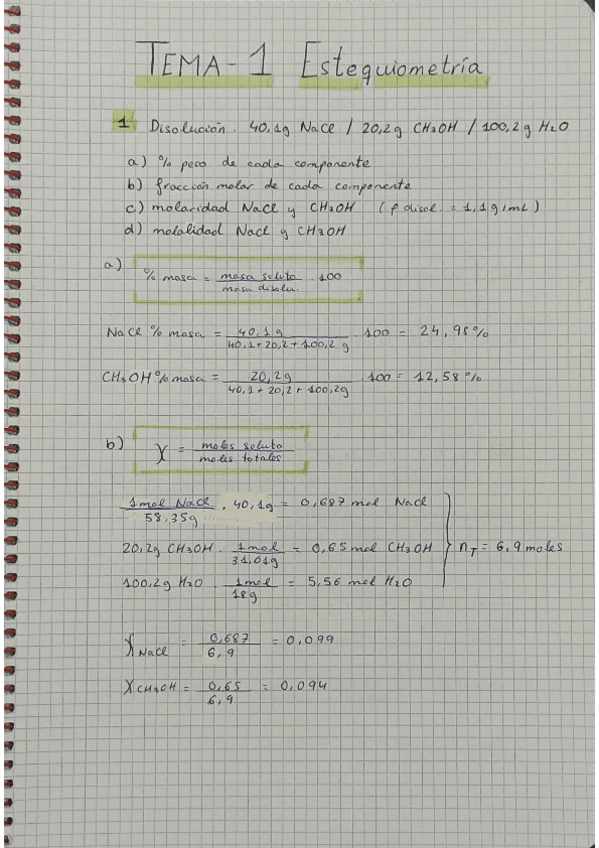 TEMA-1 Estequiometría
1 Disolución. 40,1g NaCl / 20,2g CH3OH / 100,2g H2O
a) % peso de cada componente
b) fracción molar de cada componente
c) molaridad NaCl y CH3OH (ρ disol. = 1,1 g/mL)
d) molalidad NaCl y CH3OH
a) % masa = masa soluto / masa disolu. · 100
NaCl % masa = 40,1 g / 40,1+20,2+100,2 g · 100 = 24,98%
CH3OH % masa = 20,2g / 40,1+20,2+100,2g · 100 = 12,58%
b) χ = moles soluto / moles totales
1mol NaCl / 58,35g · 40,1g = 0,687 mol NaCl
20,2g CH3OH · 1mol / 31,01g = 0,65 mol CH3OH
nT = 6,9 moles
100,2g H2O · 1mol / 18g = 5,56 mol H2O
χ NaCl = 0,687 / 6,9 = 0,099
χ CH3OH = 0,65 / 6,9 = 0,094